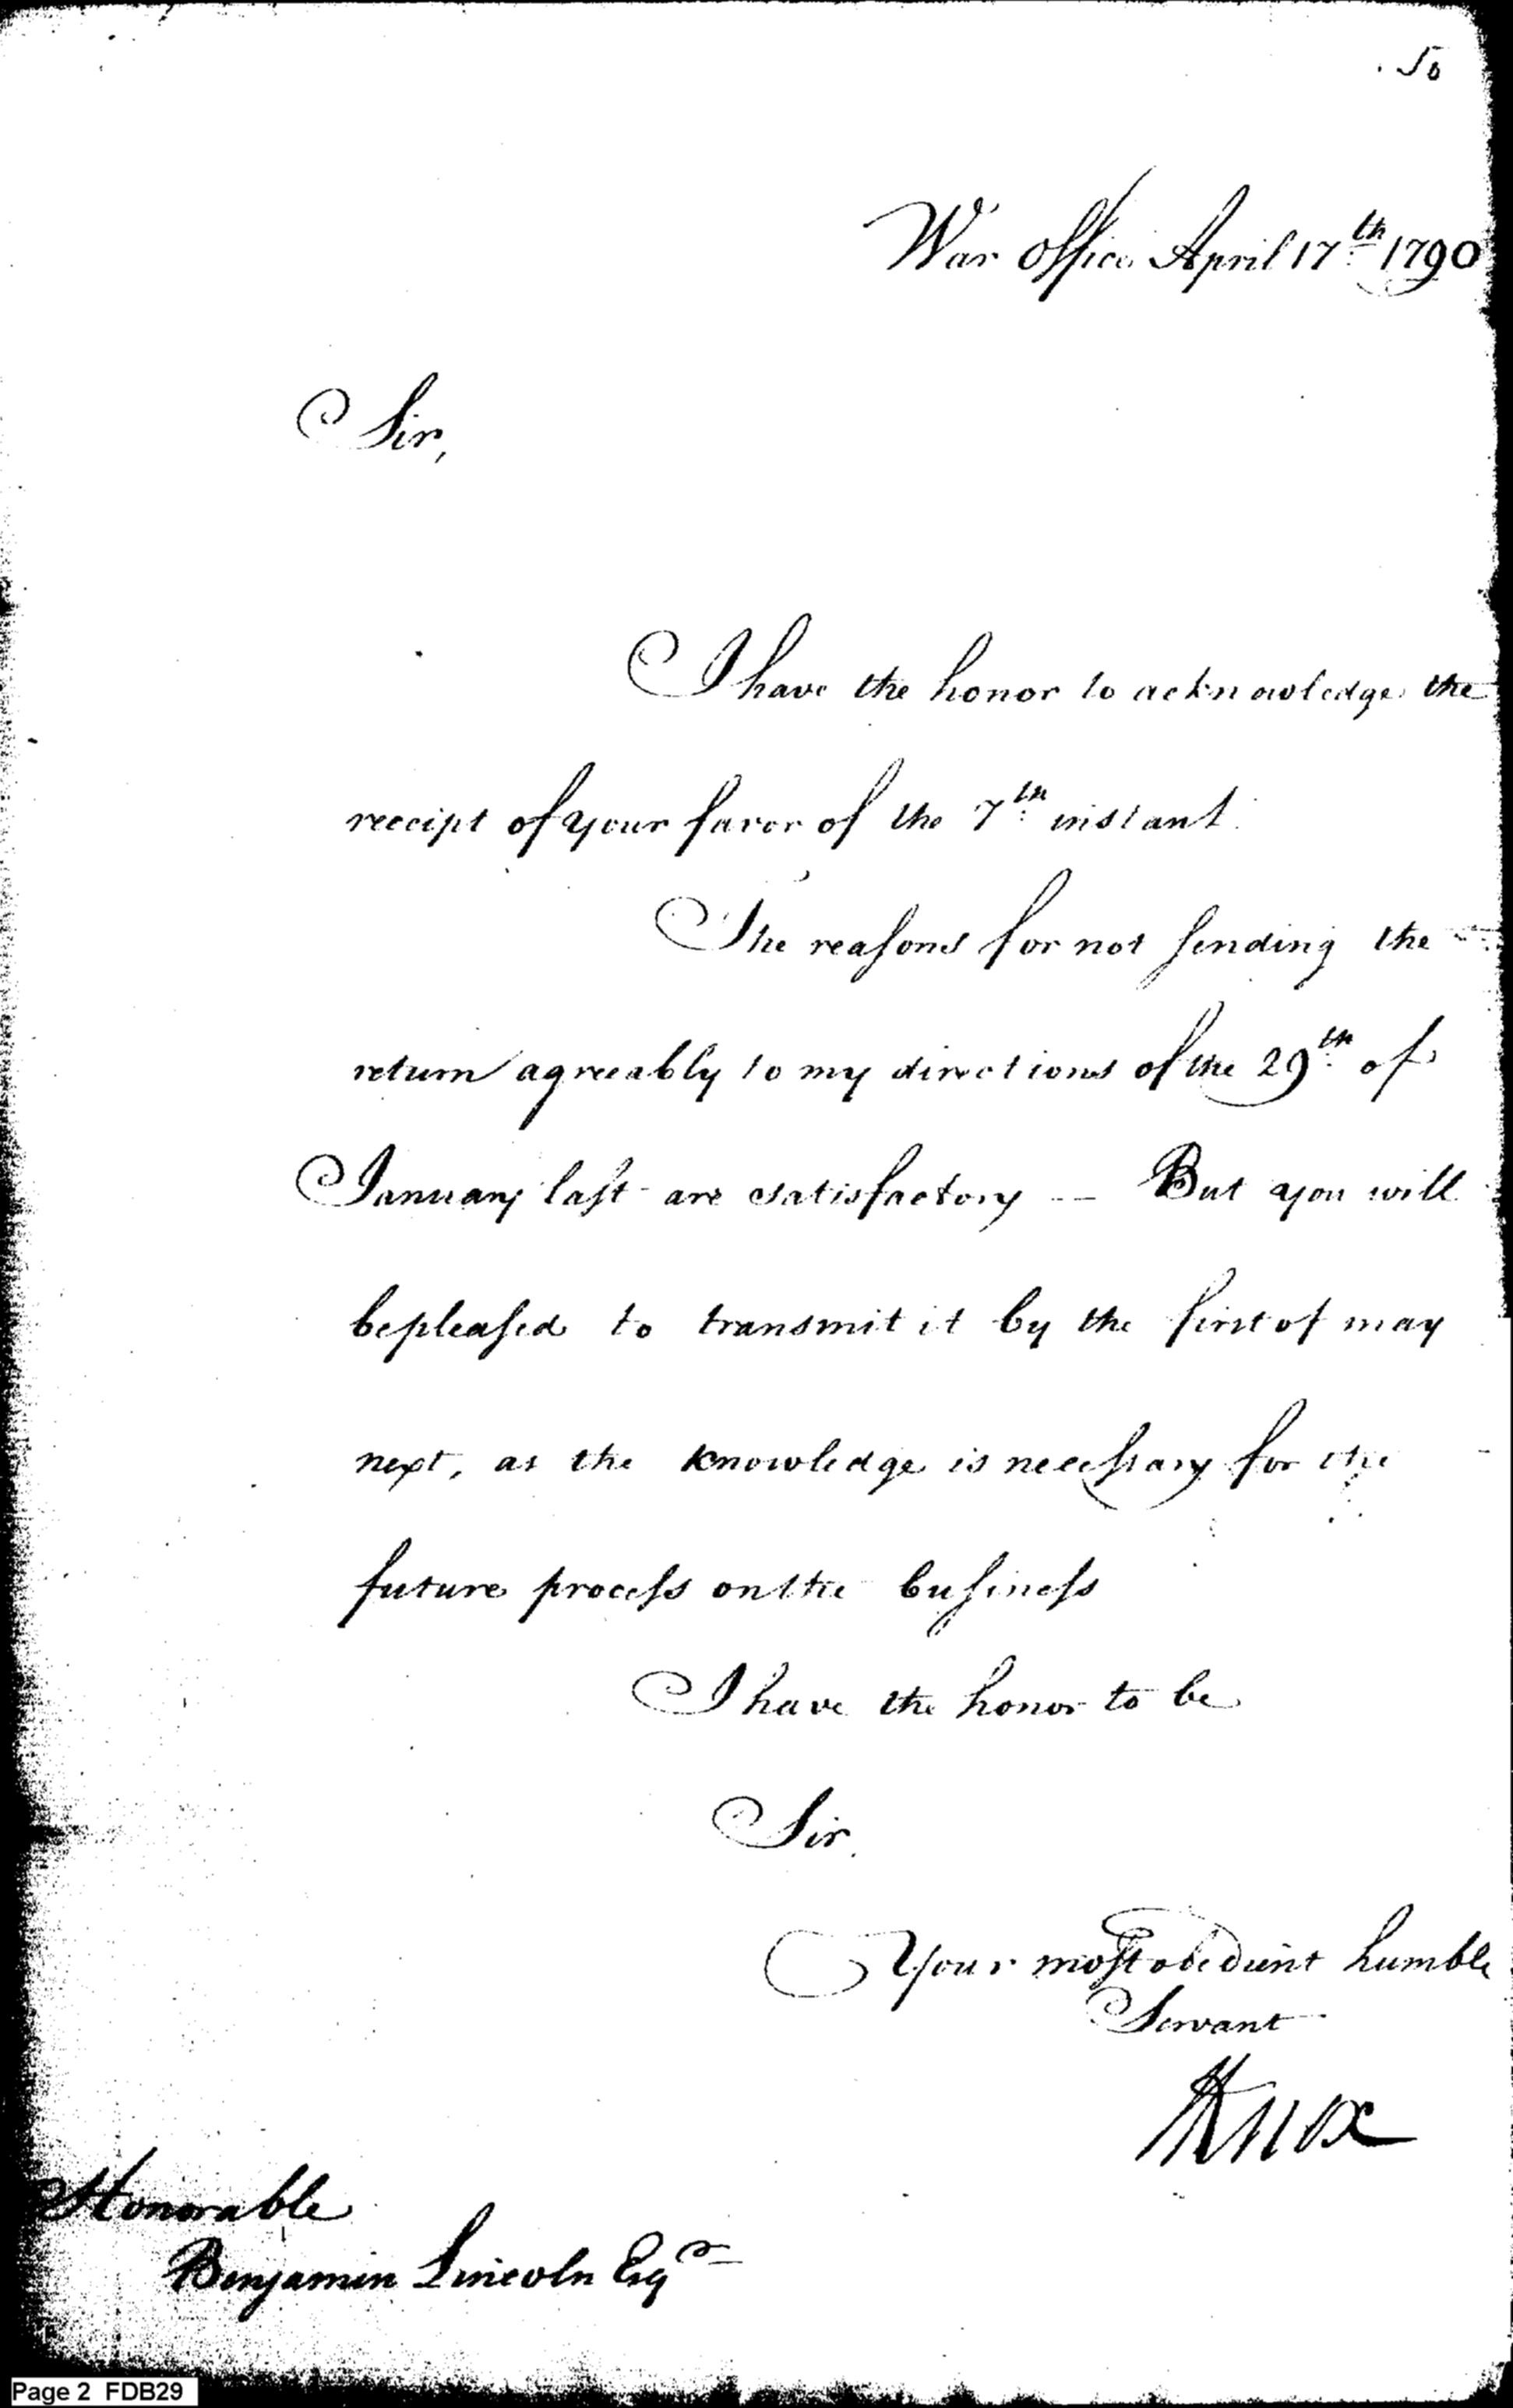 50
War Office April 17th 1790
Sir,
I have the honor to acknowledge the
receipt of your favor of the 7th instant.
The reasons for not sending the
return agreeably to my directions of the 29th of
January last are satisfactory — But you will
be pleased to transmit it by the first of may
next, as the knowledge is necessary for the
future process on the business
I have the honor to be
Sir.
Your most obedient humble
Servant
HKnox
Honorable
Benjamin Lincoln Esqr
Page 2 FDB29